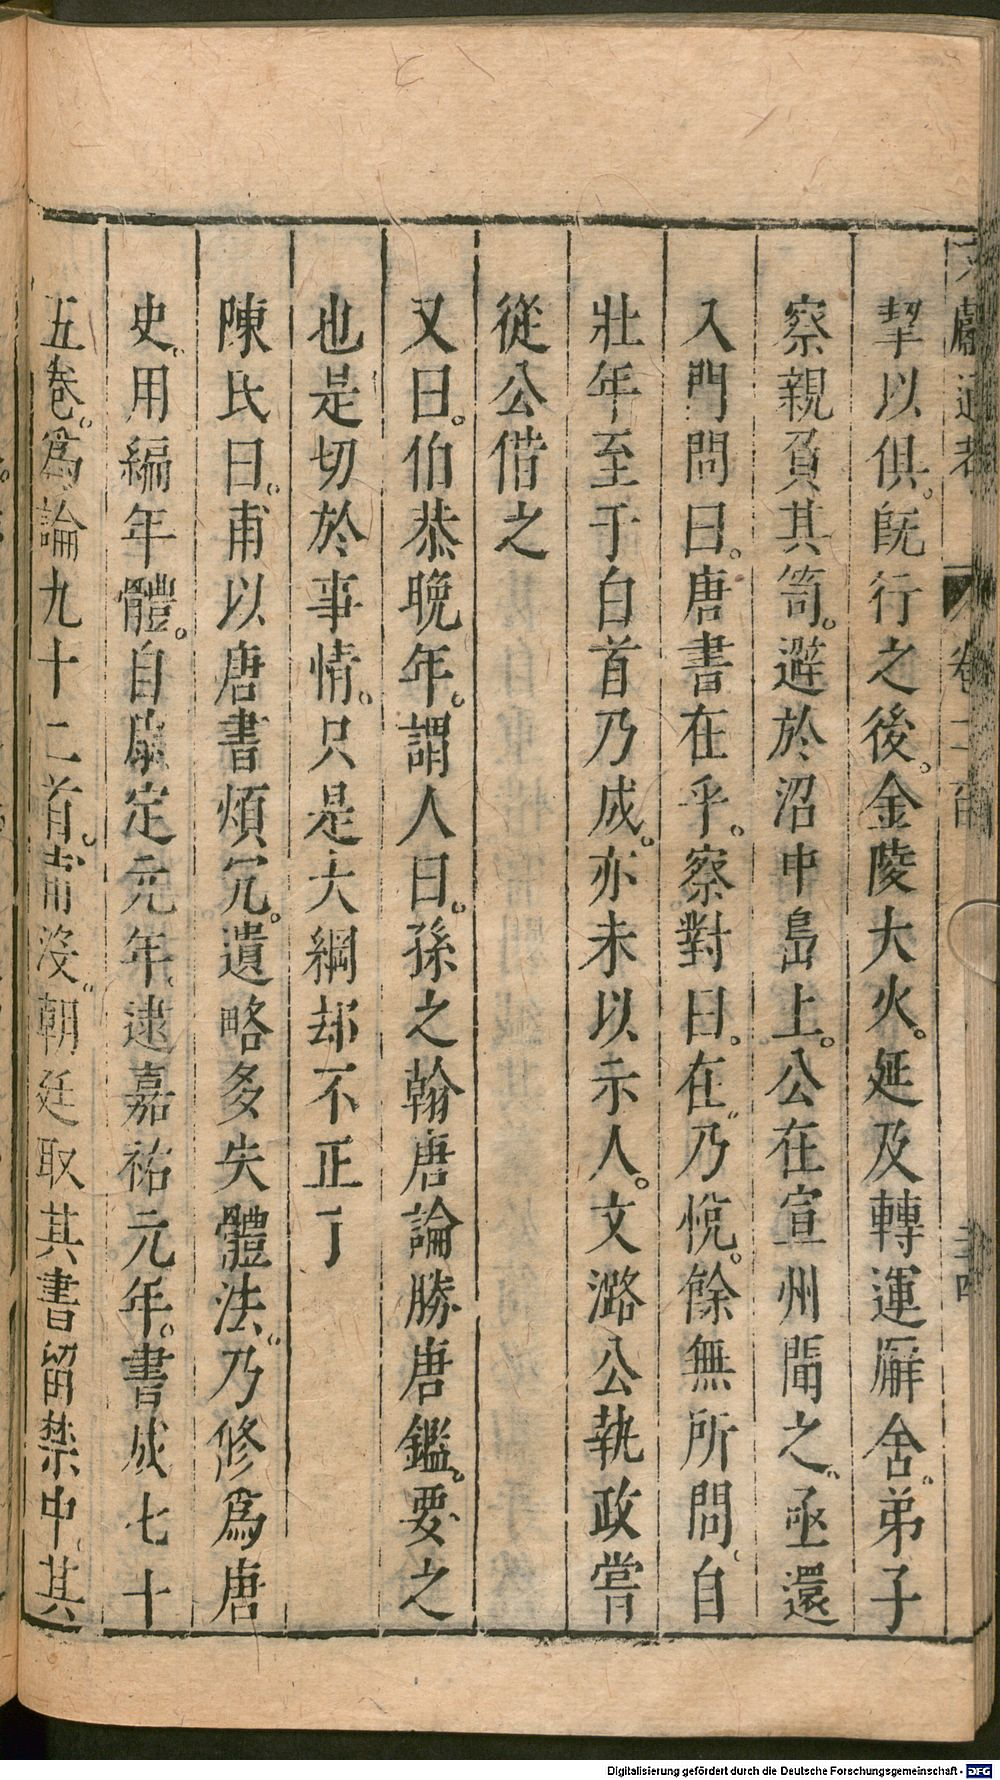 文獻通考 卷二百 三十四
挈以俱。旣行之後。金陵大火。延及轉運廨舍。弟子
察親負其笥。避於沼中島上。公在宣州聞之。亟還
入門問曰。唐書在乎。察對曰。在。乃悅。餘無所問。自
壯年至于白首乃成。亦未以示人。文潞公執政嘗
從公借之
又曰。伯恭晚年。謂人曰。孫之翰唐論勝唐鑑。要之
也是切於事情。只是大綱却不正了
陳氏曰。甫以唐書煩冗。遺略多失體法。乃修爲唐
史。用編年體。自康定元年。逮嘉祐元年。書成七十
五卷。爲論九十二首。甫沒。朝廷取其書留禁中。其
Digitalisierung gefördert durch die Deutsche Forschungsgemeinschaft - DFG